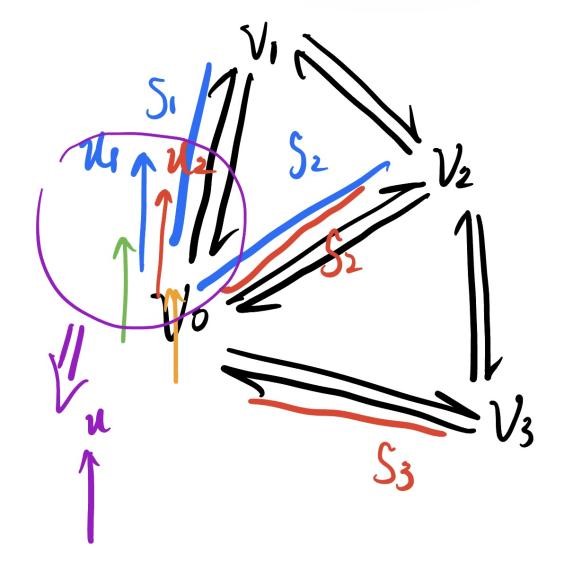 V1
S1
u1 u2
S2
V2
S2
V0
u
V3
S3